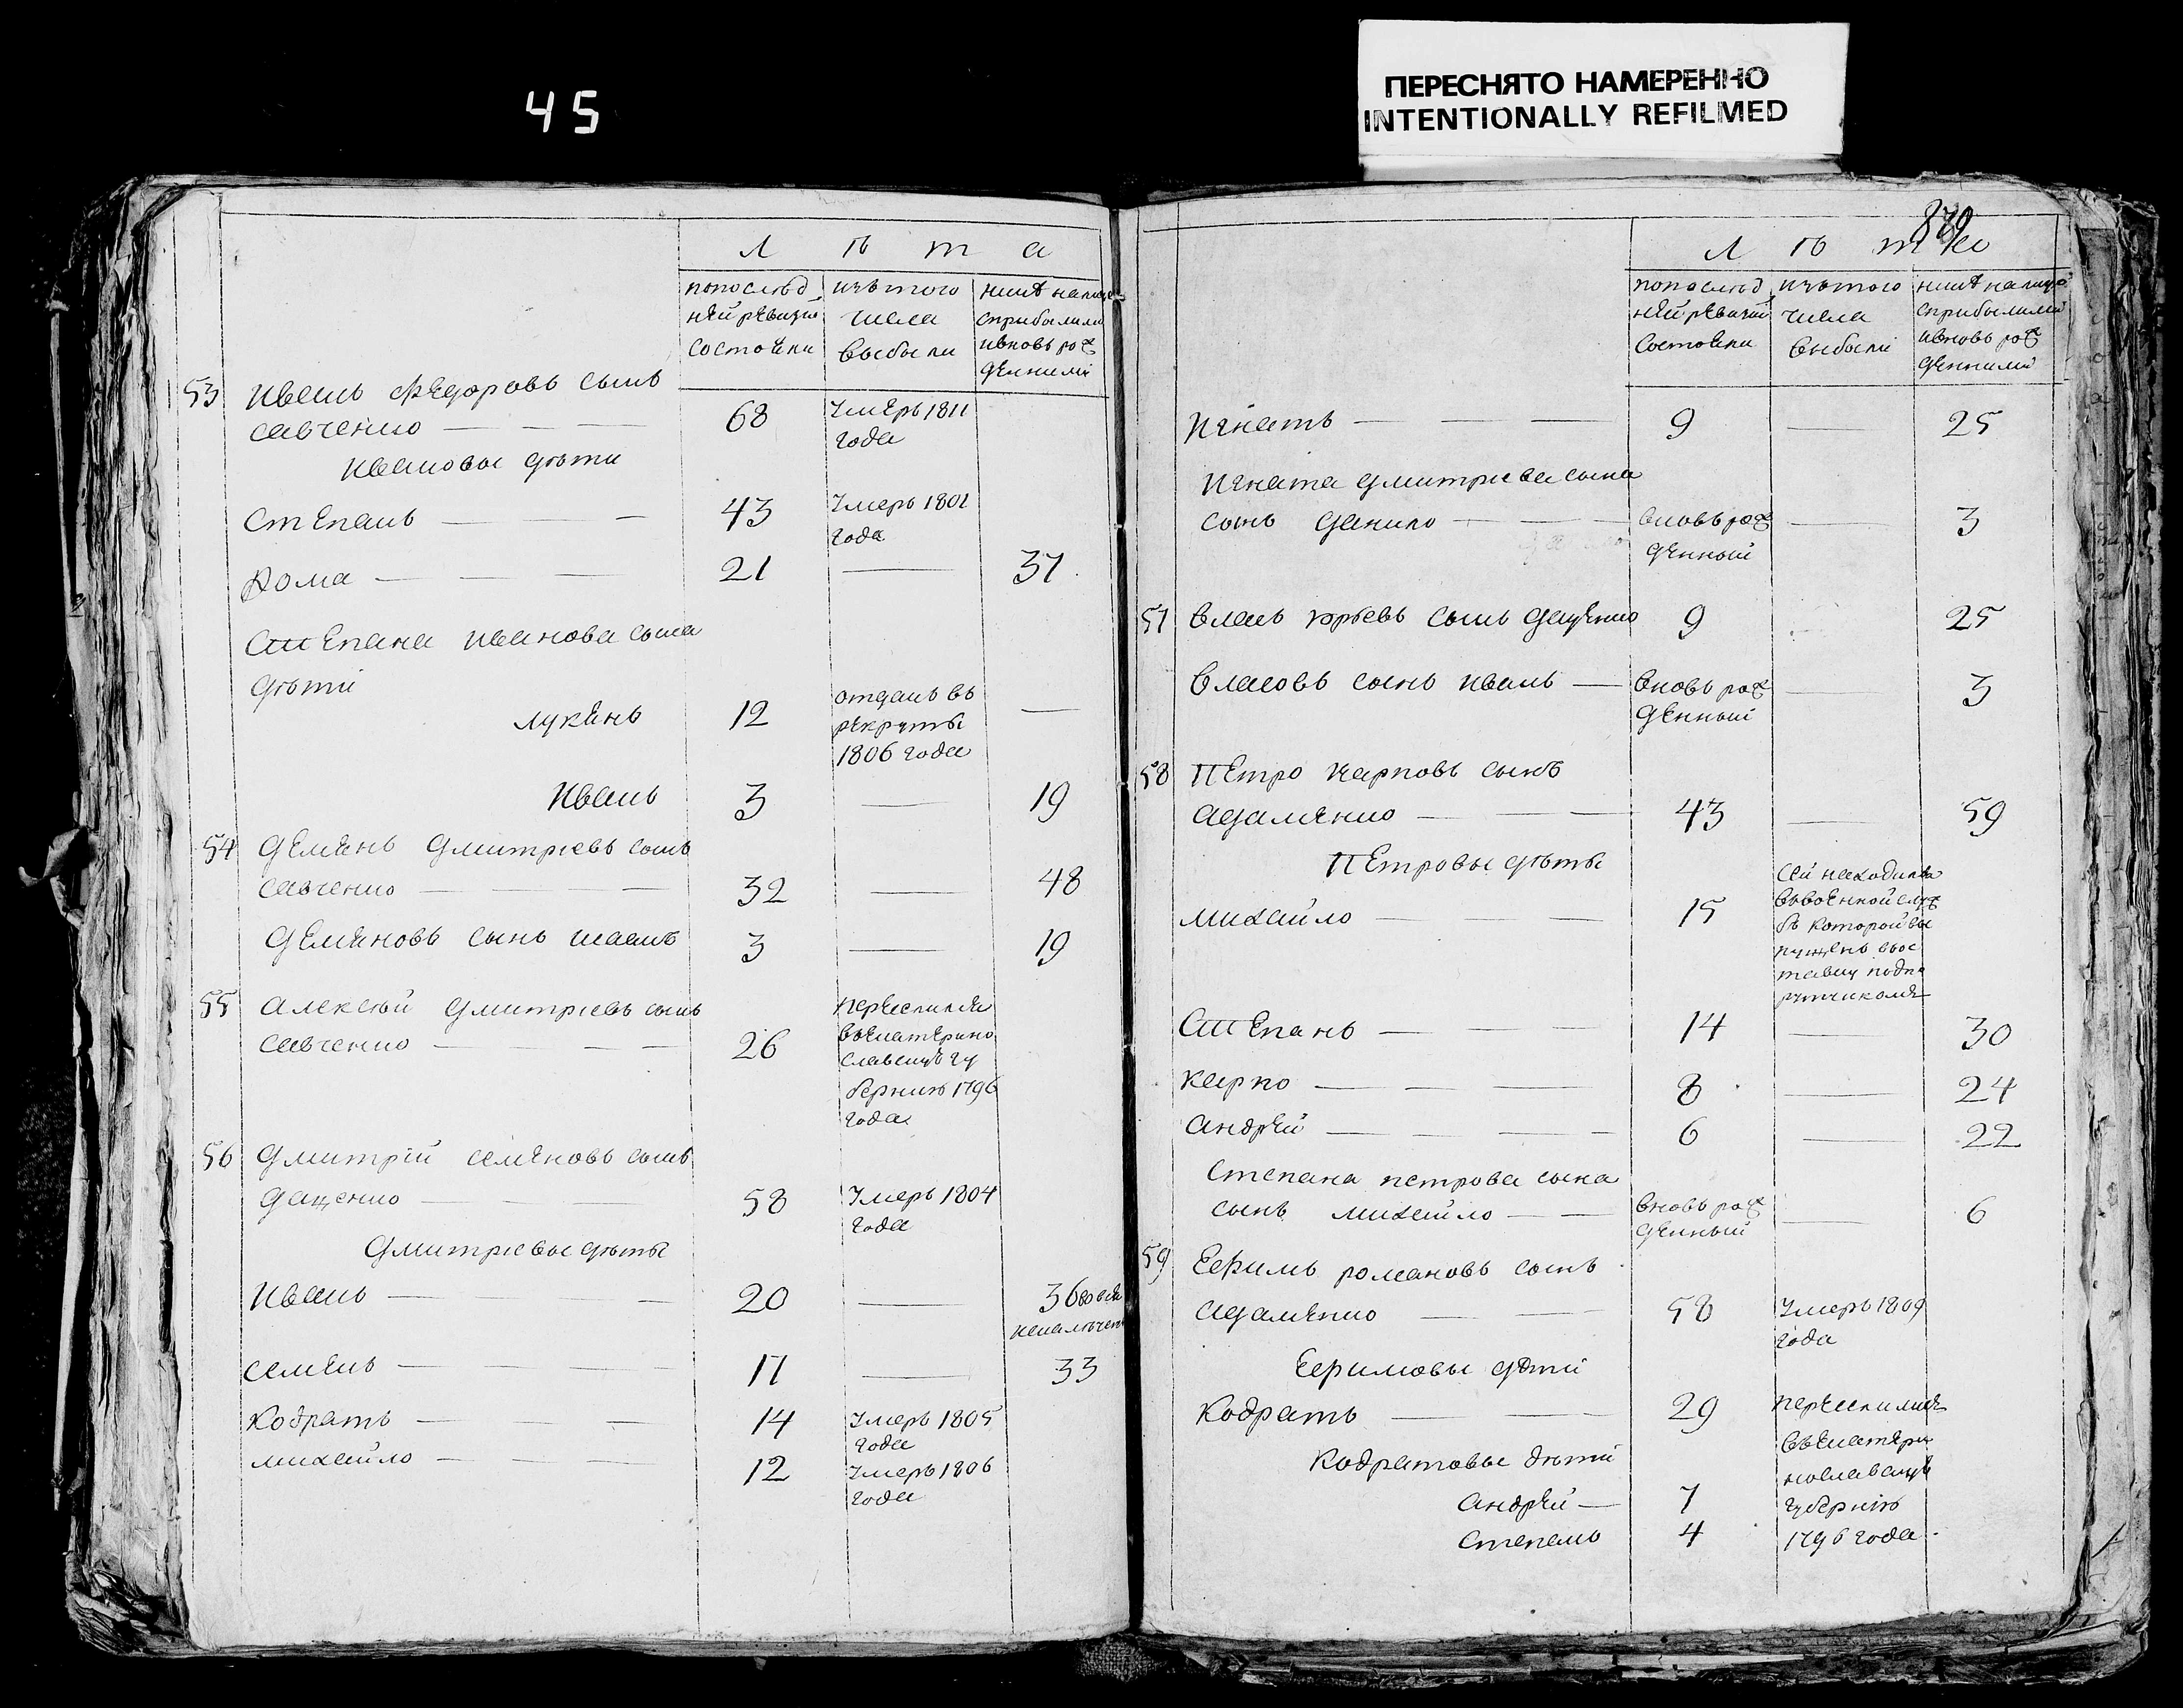 45
ПЕРЕСНЯТО НАМЕРЕННО
INTENTIONALLY REFILMED
Л ѣ т а
попослѣд
ней ревизіи
состояли
изъ того
числа
выбыли
нынѣ на лицо
сприбылыми
ивновь рож
денными
53 Иванъ Федоровъ сынъ
савченко — — — 68 Умеръ 1811
года
Ивановы дѣти
Степанъ — — — 43 Умеръ 1801
года
Хома — — — 21 — 37
Степана Иванова сына
дѣти
лукянъ 12 отданъ въ
рекруты
1806 года —
Иванъ 3 — 19
54 Демянъ Дмитріевъ сынъ
савченко — — 32 — 48
Демяновъ сынъ 3 — 19
55 Алексѣй Дмитріевъ сынъ
савченко — — — 26 переселился
въ Екатерино
славскую гу
бернию 1796
года
56 Дмитрій семеновъ сынъ
Даценко — — 58 Умеръ 1804
года
Дмитріевы дѣты
Иванъ — — 20 — 36
Семенъ — — — 17 — 33
Кодратъ — — 14 Умеръ 1805
года
михайло — — — 12 Умеръ 1806
года
879
Л ѣ т а
попослѣд
ней ревизіи
состояли
изъ того
числа
выбыли
нынѣ на лицо
сприбылыми
ивновь рож
денными
Игнатъ — — — 9 — 25
Игната Дмитриева сына
сынъ Данило — — — вновь рож
денный — 3
57 Власъ юрьевъ сынъ Даценко 9 25
Власовъ сынъ Иванъ — вновь рож
денный — 3
58 Петро Карповъ сынъ
Адаменко — — — 43 — 59
Петровы дѣты
михайло — — — 15 сей находился
въ военной служ
бѣ которой вы
пущенъ вѡс
тавку подпо
рутчикомъ
Степанъ — — 14 — 30
Карпо — — — 8 — 24
Андрей — — — 6 — 22
Степана петрова сына
сынъ михайло — — вновь рож
денный — 6
59 Ефимъ романовъ сынъ
Адаменко — — 58 Умеръ 1809
года
Ефимовы дѣти
Кодратъ — — 29 переселился
въ Екатери
нославскую
губернию
1796 года
Кодратовы дѣти
Андрей — 7
Степанъ 4